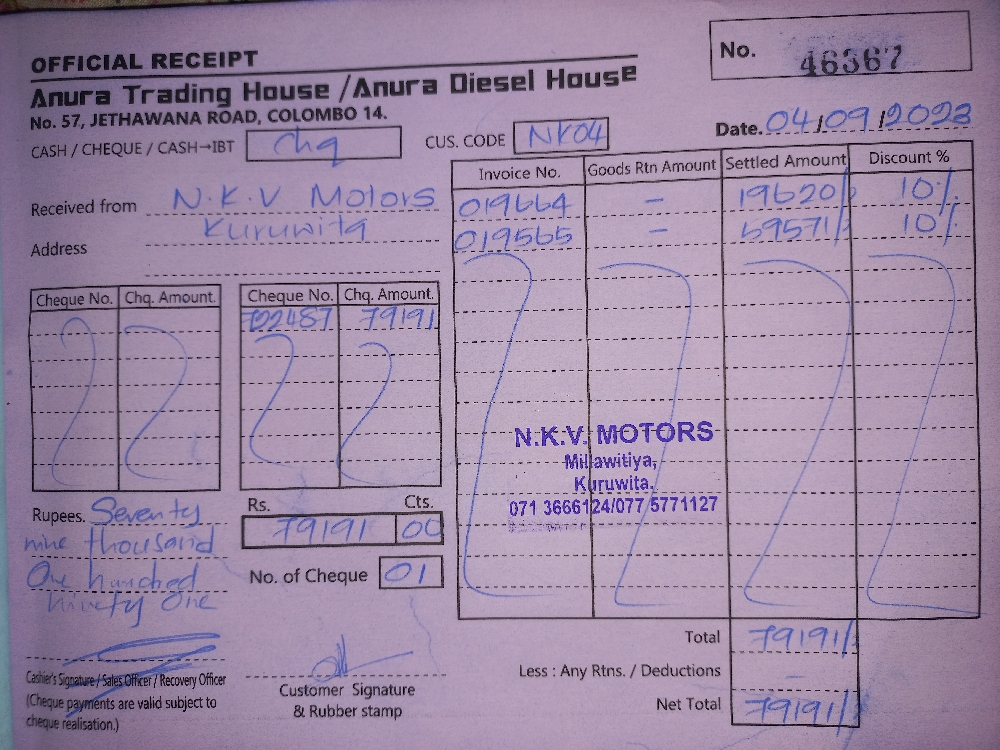 OFFICIAL RECEIPT
No. 46367
Anura Trading House /Anura Diesel House
No. 57, JETHAWANA ROAD, COLOMBO 14.
Date. 04/09/2023
CASH / CHEQUE / CASH→IBT chq CUS. CODE NK04
Received from N.K.V Motors
Address Kuruwita
Invoice No. Goods Rtn Amount Settled Amount Discount %
019664 - 19620/ 10%
019565 - 59571/ 10%
Cheque No. Chq. Amount. Cheque No. Chq. Amount.
722487 79191
N.K.V. MOTORS
Millawitiya,
Kuruwita.
071 3666124/077 5771127
Rupees. Seventy
nine thousand
One hundred
ninety One
Rs. Cts.
79191 00
No. of Cheque 01
Total 79191/
Less : Any Rtns. / Deductions -
Net Total 79191/
Cashier's Signature / Sales Officer / Recovery Officer
(Cheque payments are valid subject to
cheque realisation.)
Customer Signature
& Rubber stamp